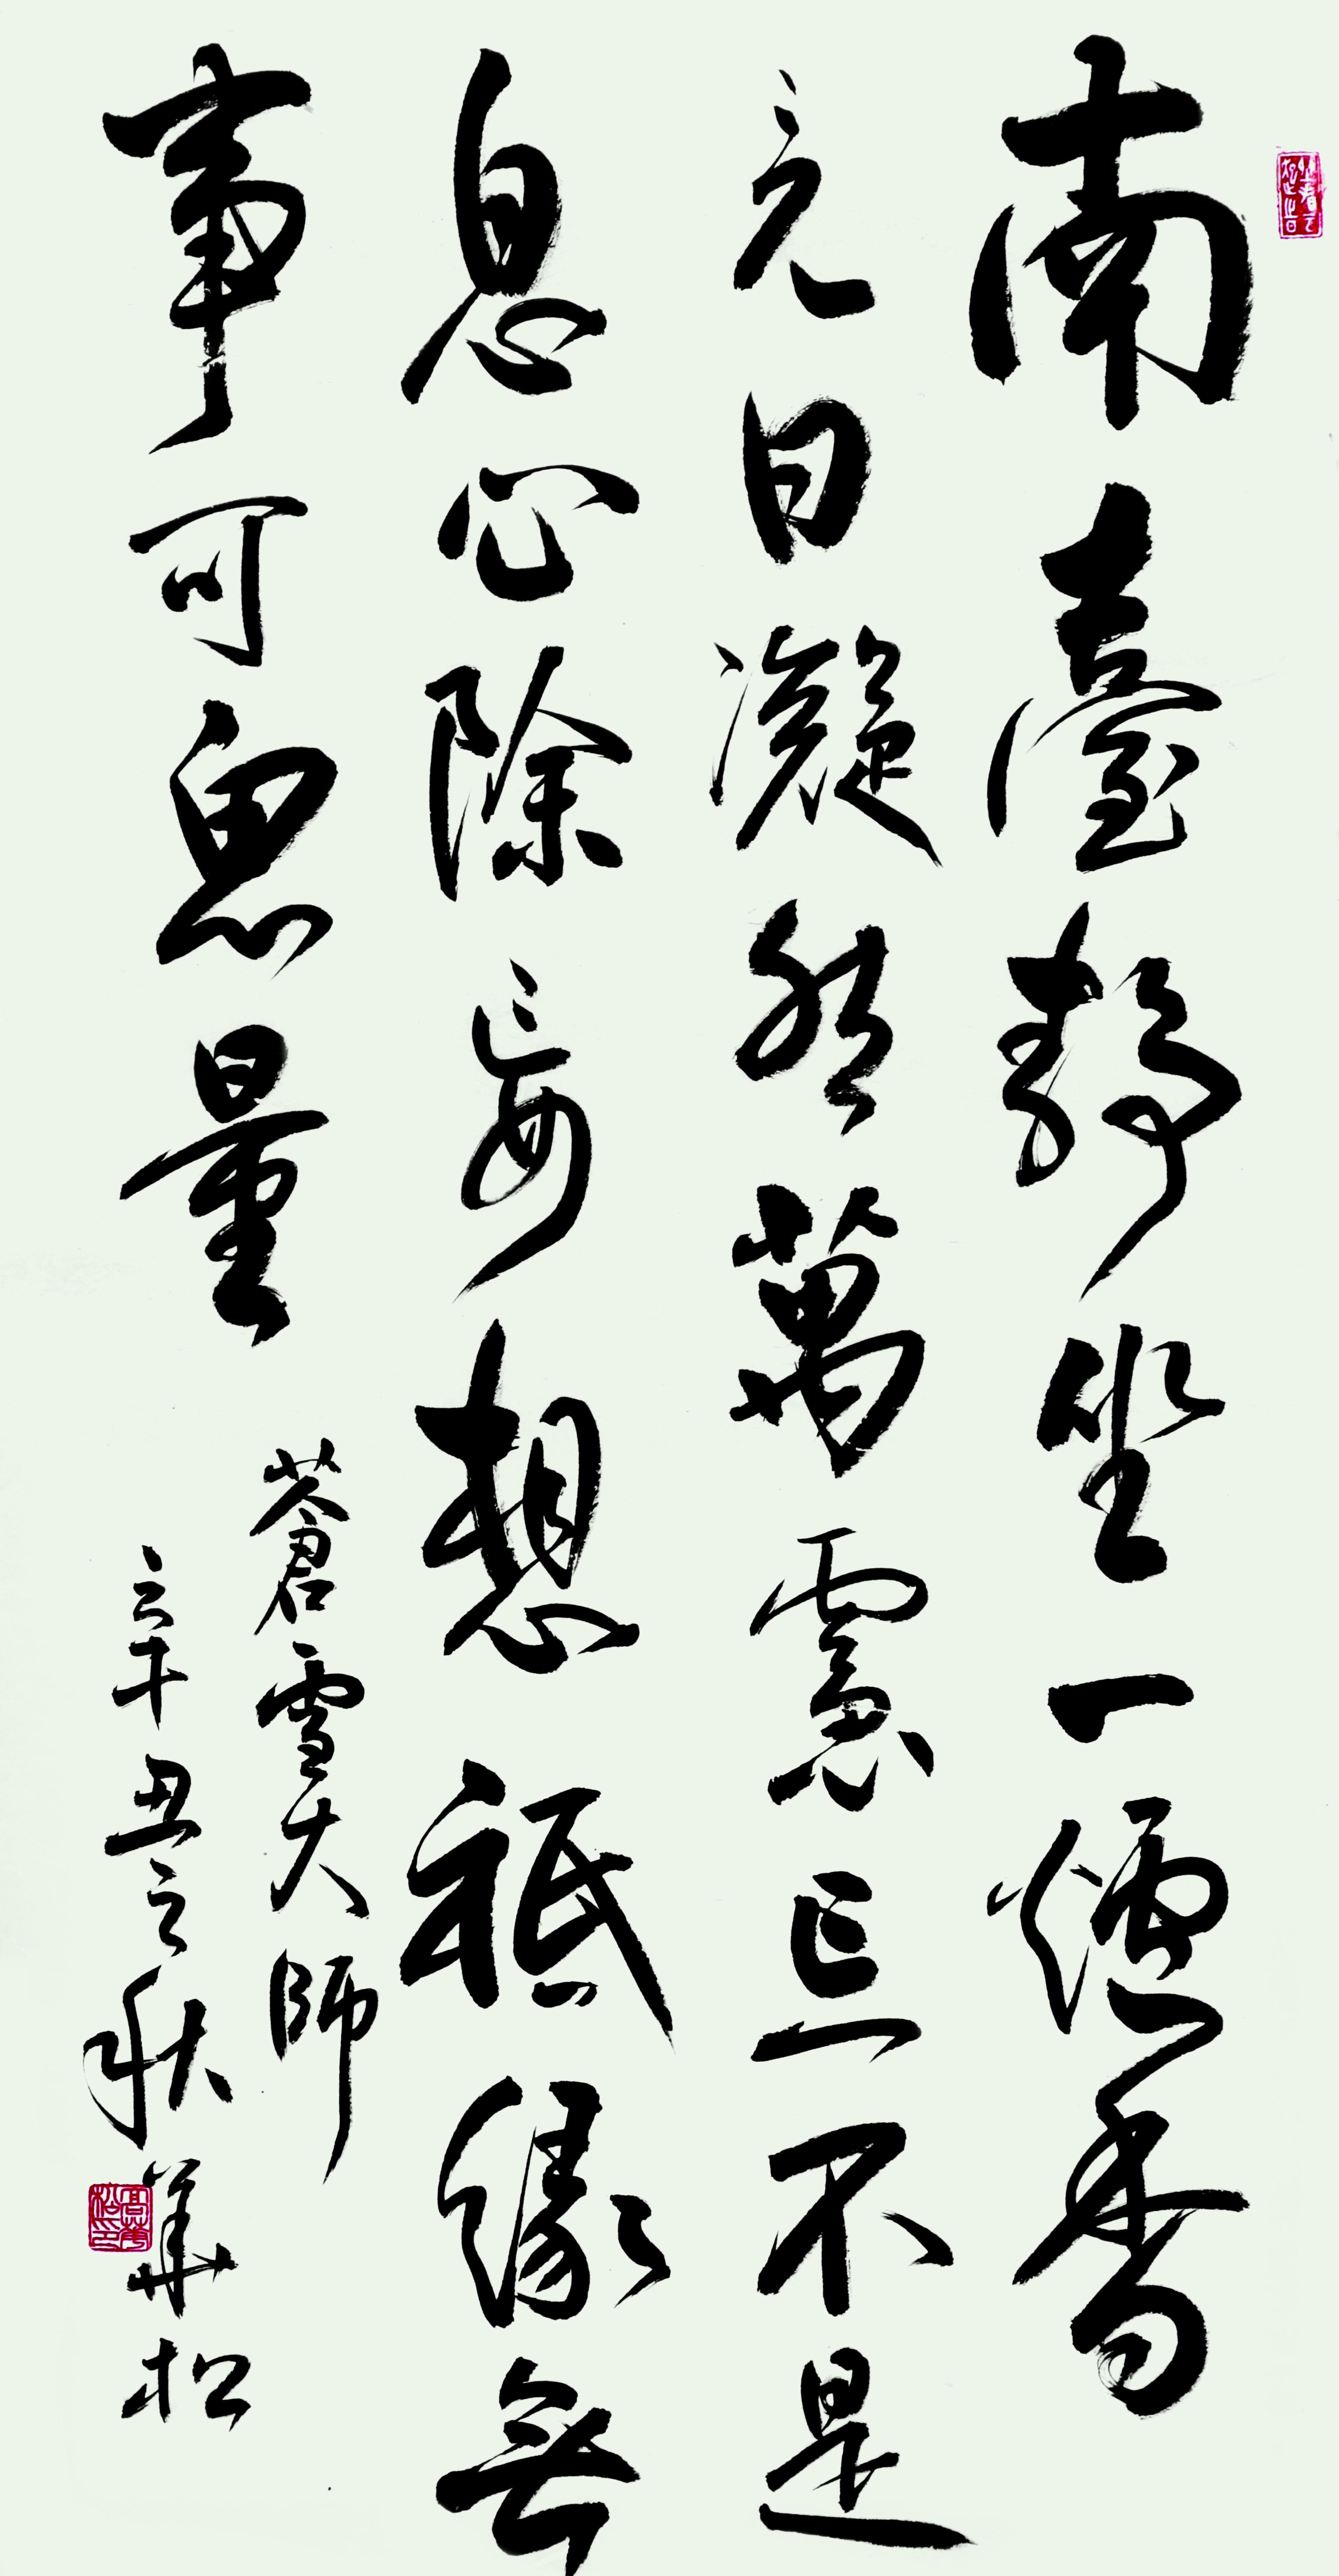 南臺靜坐一爐香
亡日凝然萬慮亡不是
息心除妄想祗緣無
事可思量
蒼雪大師
辛丑之秋華松